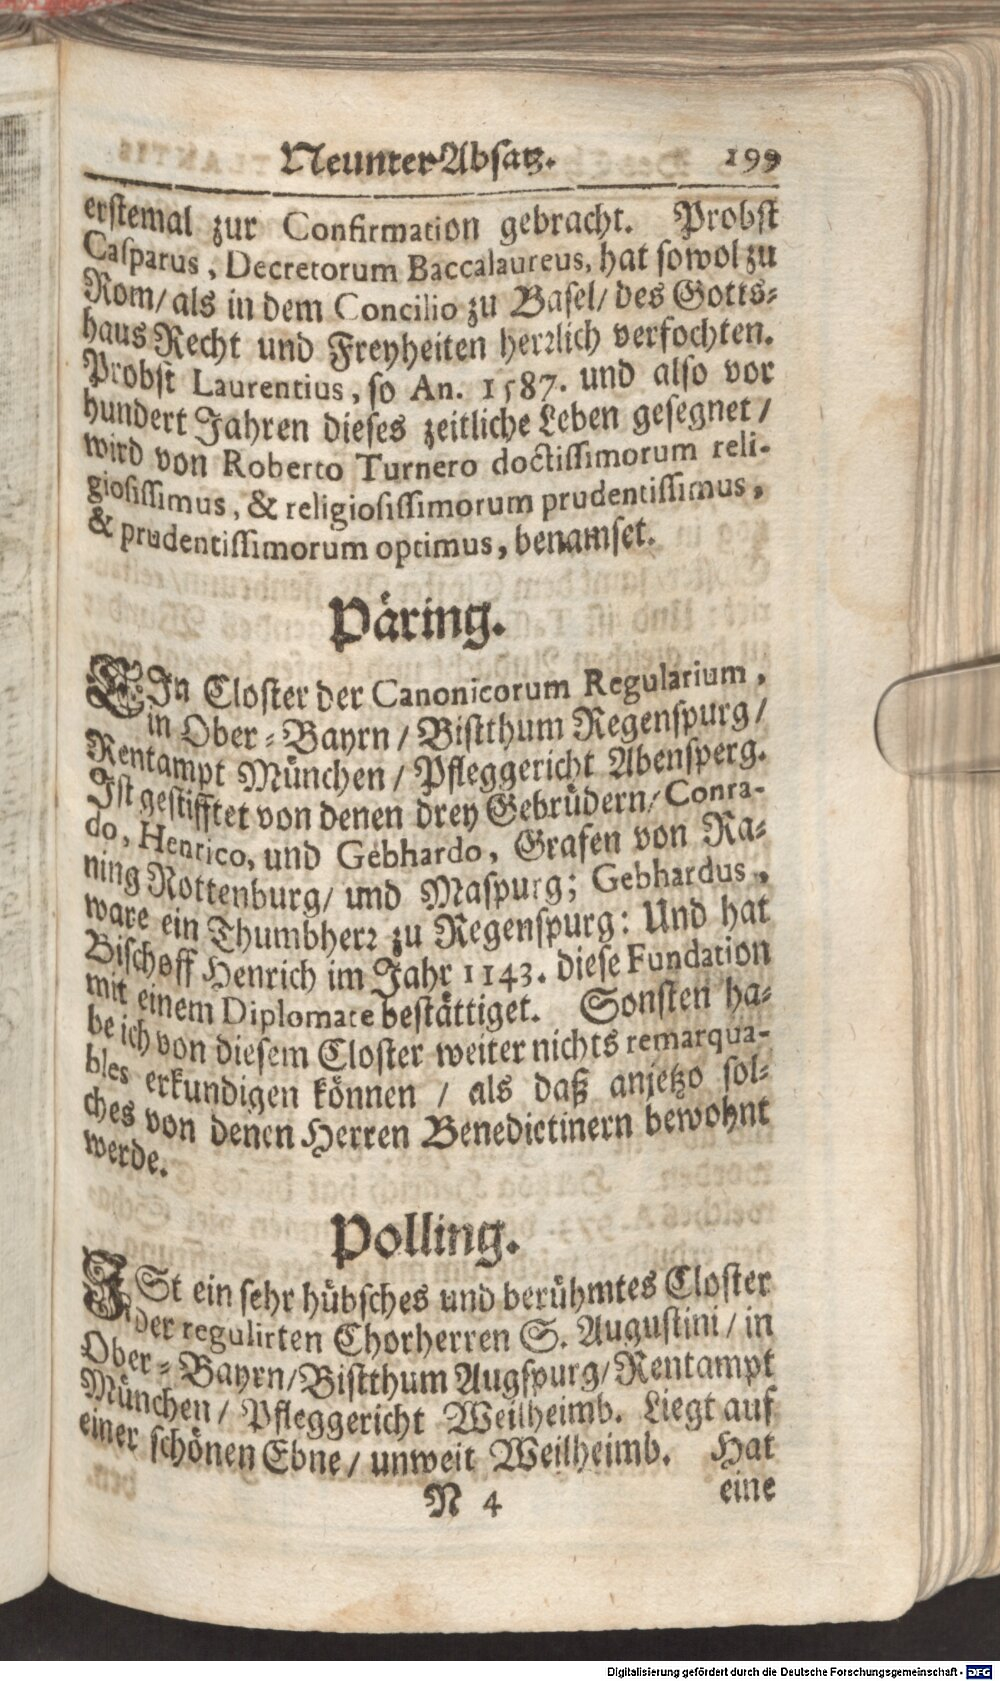 Neunter Absatz. 199
erstemal zur Confirmation gebracht. Probst
Casparus, Decretorum Baccalaureus, hat sowol zu
Rom/ als in dem Concilio zu Basel/ des Gotts-
haus Recht und Freyheiten herrlich verfochten.
Probst Laurentius, so An. 1587. und also vor
hundert Jahren dieses zeitliche Leben gesegnet /
wird von Roberto Turnero doctissimorum reli-
giosissimus, & religiosissimorum prudentissimus,
& prudentissimorum optimus, benamset.
Päring.
EIn Closter der Canonicorum Regularium,
in Ober-Bayrn / Bistthum Regenspurg /
Rentampt München / Pfleggericht Abensperg.
Ist gestifftet von denen drey Gebrüdern / Conra-
do, Henrico, und Gebhardo, Grafen von Ra-
ning Rottenburg/ und Maspurg; Gebhardus,
ware ein Thumbherr zu Regenspurg: Und hat
Bischoff Henrich im Jahr 1143. diese Fundation
mit einem Diplomate bestättiget. Sonsten ha-
be ich von diesem Closter weiter nichts remarqua-
bles erkundigen können / als daß anjetzo sol-
ches von denen Herren Benedictinern bewohnt
werde.
Polling.
ISt ein sehr hübsches und berühmtes Closter
der regulirten Chorherren S. Augustini / in
Ober-Bayrn/ Bistthum Augspurg/ Rentampt
München / Pfleggericht Weilheimb. Liegt auf
einer schönen Ebne / unweit Weilheimb. Hat
N 4 eine
Digitalisierung gefördert durch die Deutsche Forschungsgemeinschaft - DFG